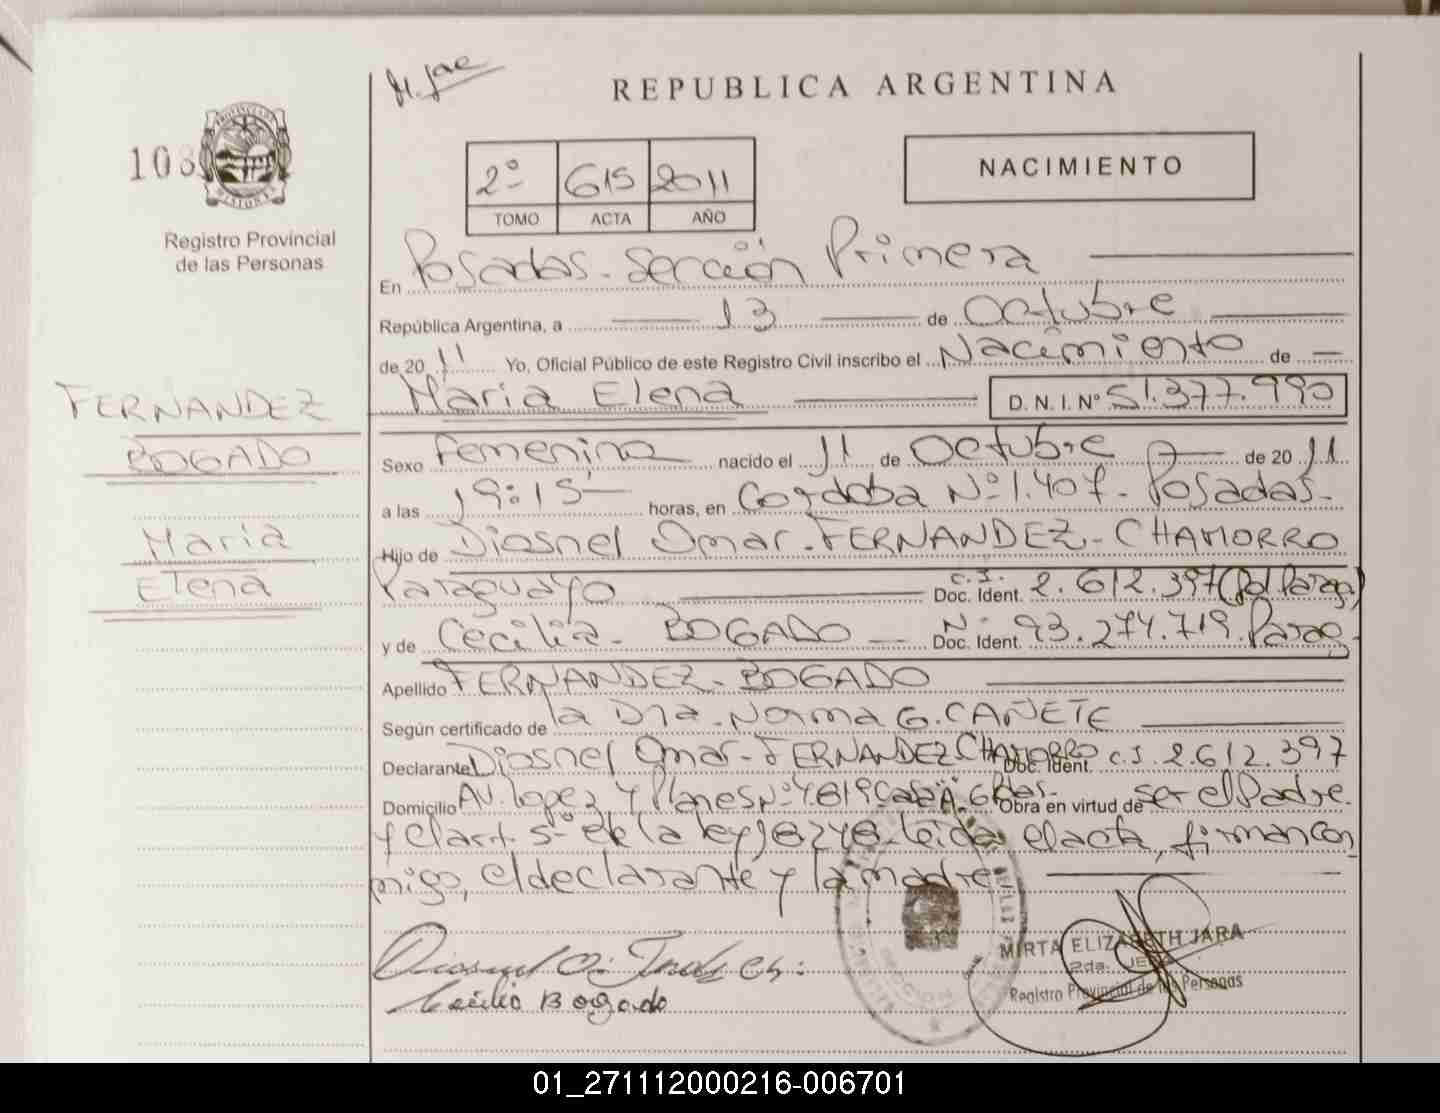 REPUBLICA ARGENTINA
108
2º 615 2011
TOMO ACTA AÑO
NACIMIENTO
Registro Provincial
de las Personas
En Posadas - Sección Primera
República Argentina, a 13 de Octubre
de 2011 Yo, Oficial Público de este Registro Civil inscribo el Nacimiento de
Maria Elena D. N. I. Nº 51.377.990
FERNANDEZ
BOGADO
Maria
Elena
Sexo Femenino nacido el 11 de Octubre de 2011
a las 19:15 horas, en Cordoba Nº 1.407 - Posadas -
Hijo de Diosnel Omar - FERNANDEZ - CHAMORRO
Paraguayo Doc. Ident. C.I. 2.612.397 (Pol Parag)
y de Cecilia - BOGADO Doc. Ident. Nº 93.274.719. Parag
Apellido FERNANDEZ - BOGADO
Según certificado de la Dra. Norma G. CAÑETE
Declarante Diosnel Omar - FERNANDEZ CHAMORRO Doc. Ident. C.I. 2.612.397
Domicilio Av. Lopez y Planes Nº 4.819 Casa A. 6 Pdas. Obra en virtud de ser el Padre
y el art 5º de la ley 18248 - leida el acta, firman con
migo, el declarante y la madre
Cecilia Bogado
MIRTA ELIZABETH JARA
2da. JEFE
Registro Provincial de las Personas
01_271112000216-006701